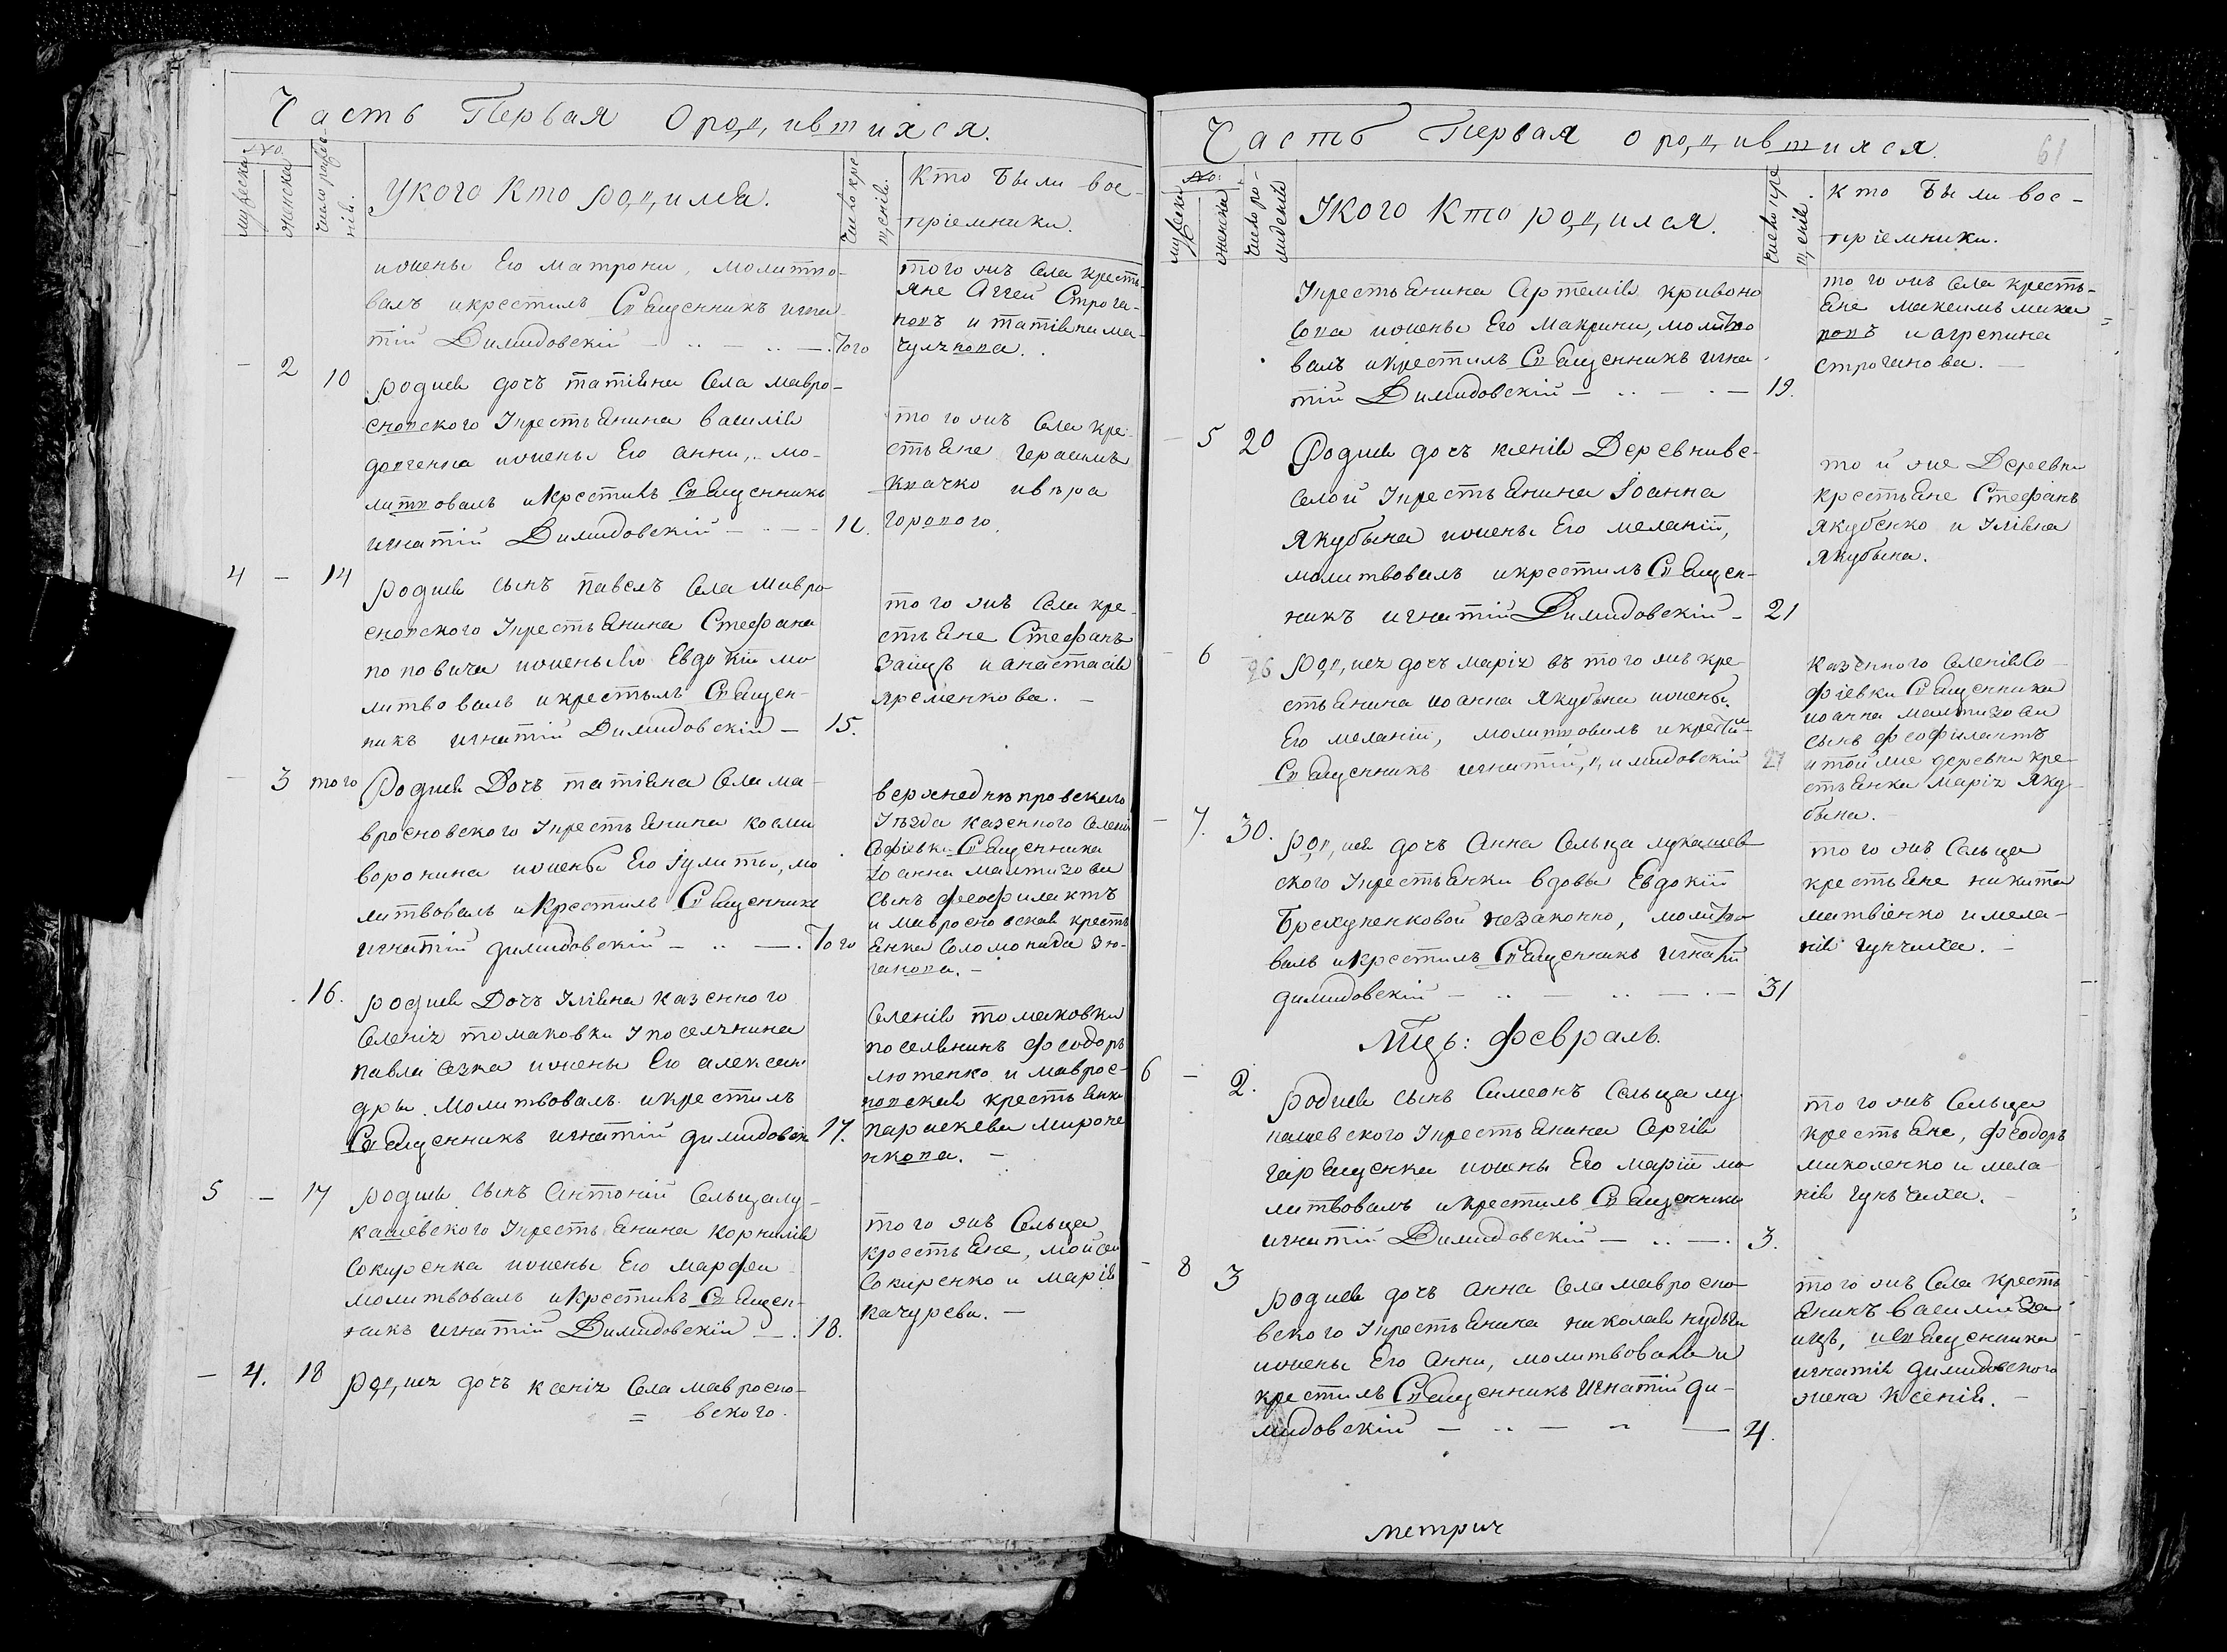 Часть Первая Ородившихся.
№.
мужеска
женска
Число рожденія.
Укого Кто родился.
Число крещенія.
Кто Были вос-
пріемники.
ижены Его матрони, молитво-
валъ икрестилъ Священникъ игна-
тій Димидовскій — .. — .. — . Того
того жъ села кресть-
яне Аггей Строга-
новъ и татіяна ма-
— 2 10
родися дочъ татіяна села мавро-
сновского Укрестьянина василія
довгенка ижены Его анни, мо-
литвовалъ икрестилъ Священникъ
игнатій Димидовскій — .. —
того жъ села кре-
стьяне герасимъ
Квачко ивѣра
4 — 14
родися сынъ павелъ села мавро
сновского Укрестьянина Стефана
поповича ижены Его Евдокіи мо
литвовалъ икрестилъ Священ-
никъ игнатій Димидовскій — 15.
того жъ села кре-
стьяне Стефанъ
Заицъ и анастасія
яременкова. —
— 3 того
Родися Дочъ татіяна села ма-
вросновского Укрестьянина косми
воронина ижены Его Іулиты, мо
литвовалъ икрестилъ Священникъ
игнатій димидовскій — .. — . Того
верхнеднѣпровскаго
Уѣзда казенного селенія
Софіевки Священника
Іоанна
сынъ феофилактъ
и мавросновская кресть
янка Соломонида
16.
родися Дочъ Уліяна казенного
селенія томаковки Упоселянина
павла ижены Его алексан
дры. Молитвовалъ икрестилъ
Священникъ игнатій димидовскі 17.
селенія томаковки
поселянинъ феодоръ
лютенко и маврос-
новская крестьянка
параскева мироне
нкова. —
5 — 17
родися сынъ Антоній Сельцалу-
кашевского Укрестьянина Корнилія
Сокиренка ижены Его марфеи
молитвовалъ икрестилъ Священ-
никъ игнатій Димидовскій — . 18.
того жъ Сельца
крестьяне, мойсей
Сокиренко и марія
качурева. —
— 4. 18
родися дочъ ксенія села мавросно-
= вского.
Часть Первая ородившихся.
61
№:
мужеска
женска
Число рожденія
Укого Кто родился.
Число крещенія.
кто Были вос-
пріемники.
Укрестьянина Артемія кривоно
соva ижены Его Макрини, молитво
валъ икрестилъ Священникъ игна-
тій Димидовскій — .. — . — 19.
того жъ села кресть-
яне
и агрепина
строганова. —
— 5 20
Родися дочъ ксенія Деревнивe-
селой Укрестьянина Іоанна
Якубына ижены Его меланіи,
молитвовалъ икрестилъ Священ-
никъ игнатій Димидовскій — 21
той же Деревни
крестьяне Стефанъ
Якубенко и Уліяна
Якубына.
— 6 — 26
родися дочъ марія въ того жъ кре
стьянина иоанна якубына ижены
Его меланіи, молитвовалъ икрестил
Священникъ игнатій, димидовскій 27
казенного селенія Со
фіевки Священника
иоанна
сынъ феофилактъ
и тойже деревни кре-
стьянка марія Яку-
бына. —
— 7. 30.
родися дочъ Анна Сельца лукашев
ского Укрестьянки вдовы Евдокіи
Брехуненковой незаконно, молитво
валъ икрестилъ Священникъ игнатій
димидовскій — .. — .. — . — 31
того жъ Сельца
крестьяне никита
матвіенко имела-
нія гунчиха. —
Мцъ: февраль.
6 — 2.
родися сынъ Симеонъ Сельца лу
кашевского Укрестьянина Сергія
гаращенка ижены Его маріи мо
литвовалъ икрестилъ Священникъ
игнатій Димидовскій — .. — . 3.
того жъ Сельца
крестьяне, феодоръ
миколенко и мела
нія гунчиха. —
— 8 3
родися дочъ анна села мавросно
вского Укрестьянина николая кудыги
ижены Его Анни, молитвовалъ и
крестилъ Священникъ Игнатій ди-
мидовскій — .. — .. — 4.
того жъ села кресть
янинъ василій За
ицъ, исвященника
игнатія димидовского
жена Ксенія. —
метрич